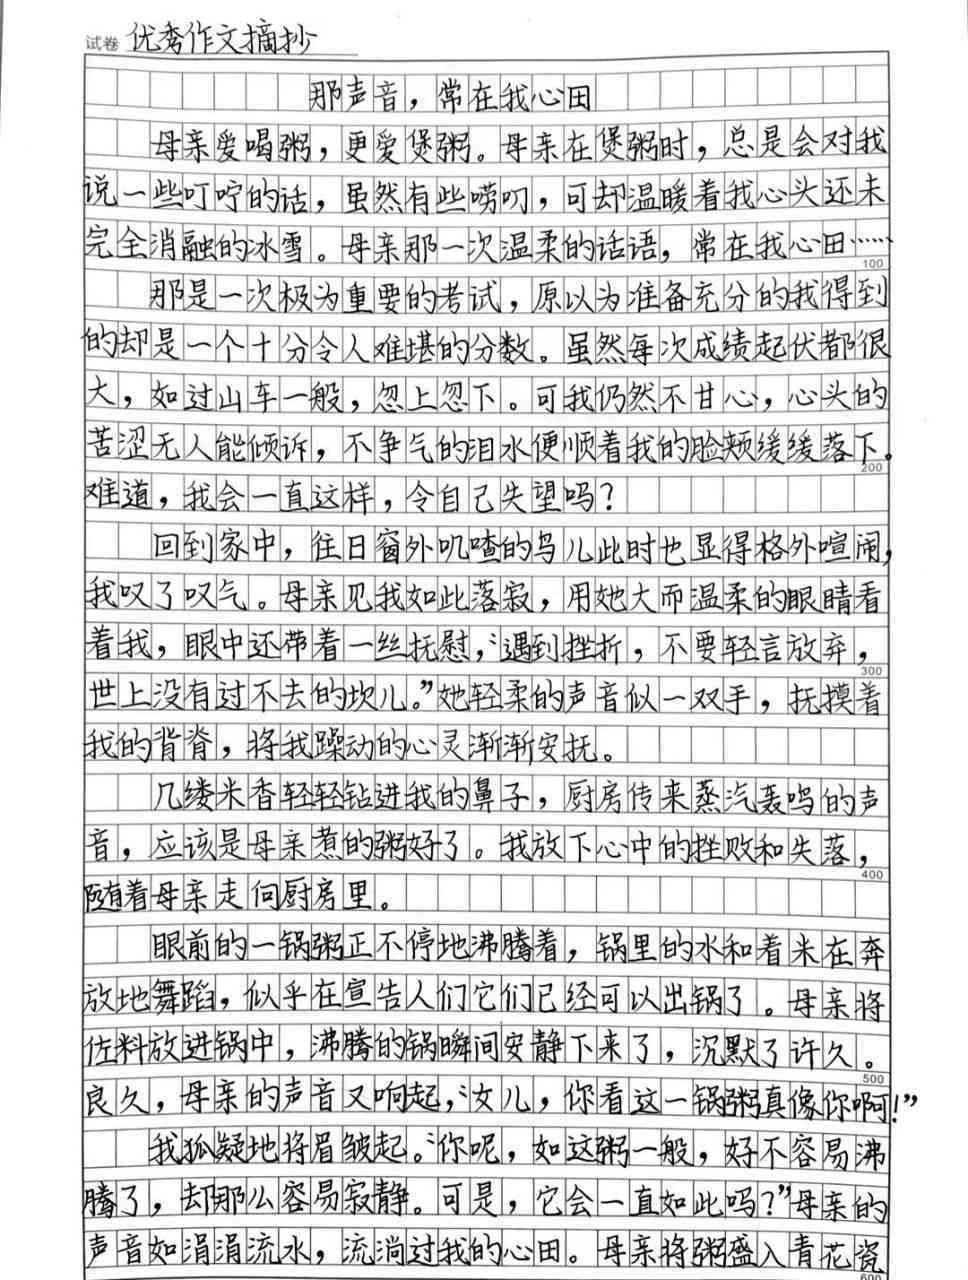 试卷 优秀作文摘抄
那声音，常在我心田
母亲爱喝粥，更爱煲粥。母亲在煲粥时，总是会对我
说一些叮咛的话，虽然有些唠叨，可却温暖着我心头还未
完全消融的冰雪。母亲那一次温柔的话语，常在我心田……
100
那是一次极为重要的考试，原以为准备充分的我得到
的却是一个十分令人难堪的分数。虽然每次成绩起伏都很
大，如过山车一般，忽上忽下。可我仍然不甘心，心头的
苦涩无人能倾诉，不争气的泪水便顺着我的脸颊缓缓落下。
200
难道，我会一直这样，令自己失望吗？
回到家中，往日窗外叽喳的鸟儿此时也显得格外喧闹，
我叹了叹气。母亲见我如此落寂，用她大而温柔的眼睛看
着我，眼中还带着一丝抚慰，“遇到挫折，不要轻言放弃，
300
世上没有过不去的坎儿。”她轻柔的声音似一双手，抚摸着
我的背脊，将我躁动的心灵渐渐安抚。
几缕米香轻轻钻进我的鼻子，厨房传来蒸汽轰鸣的声
音，应该是母亲煮的粥好了。我放下心中的挫败和失落，
400
随着母亲走向厨房里。
眼前的一锅粥正不停地沸腾着，锅里的水和着米在奔
放地舞蹈，似乎在宣告人们它们已经可以出锅了。母亲将
佐料放进锅中，沸腾的锅瞬间安静下来了，沉默了许久。
500
良久，母亲的声音又响起，“女儿，你看这一锅粥真像你啊！”
我狐疑地将眉皱起。“你呢，如这粥一般，好不容易沸
腾了，却那么容易寂静。可是，它会一直如此吗？”母亲的
声音如涓涓流水，流淌过我的心田。母亲将粥盛入青花瓷
600